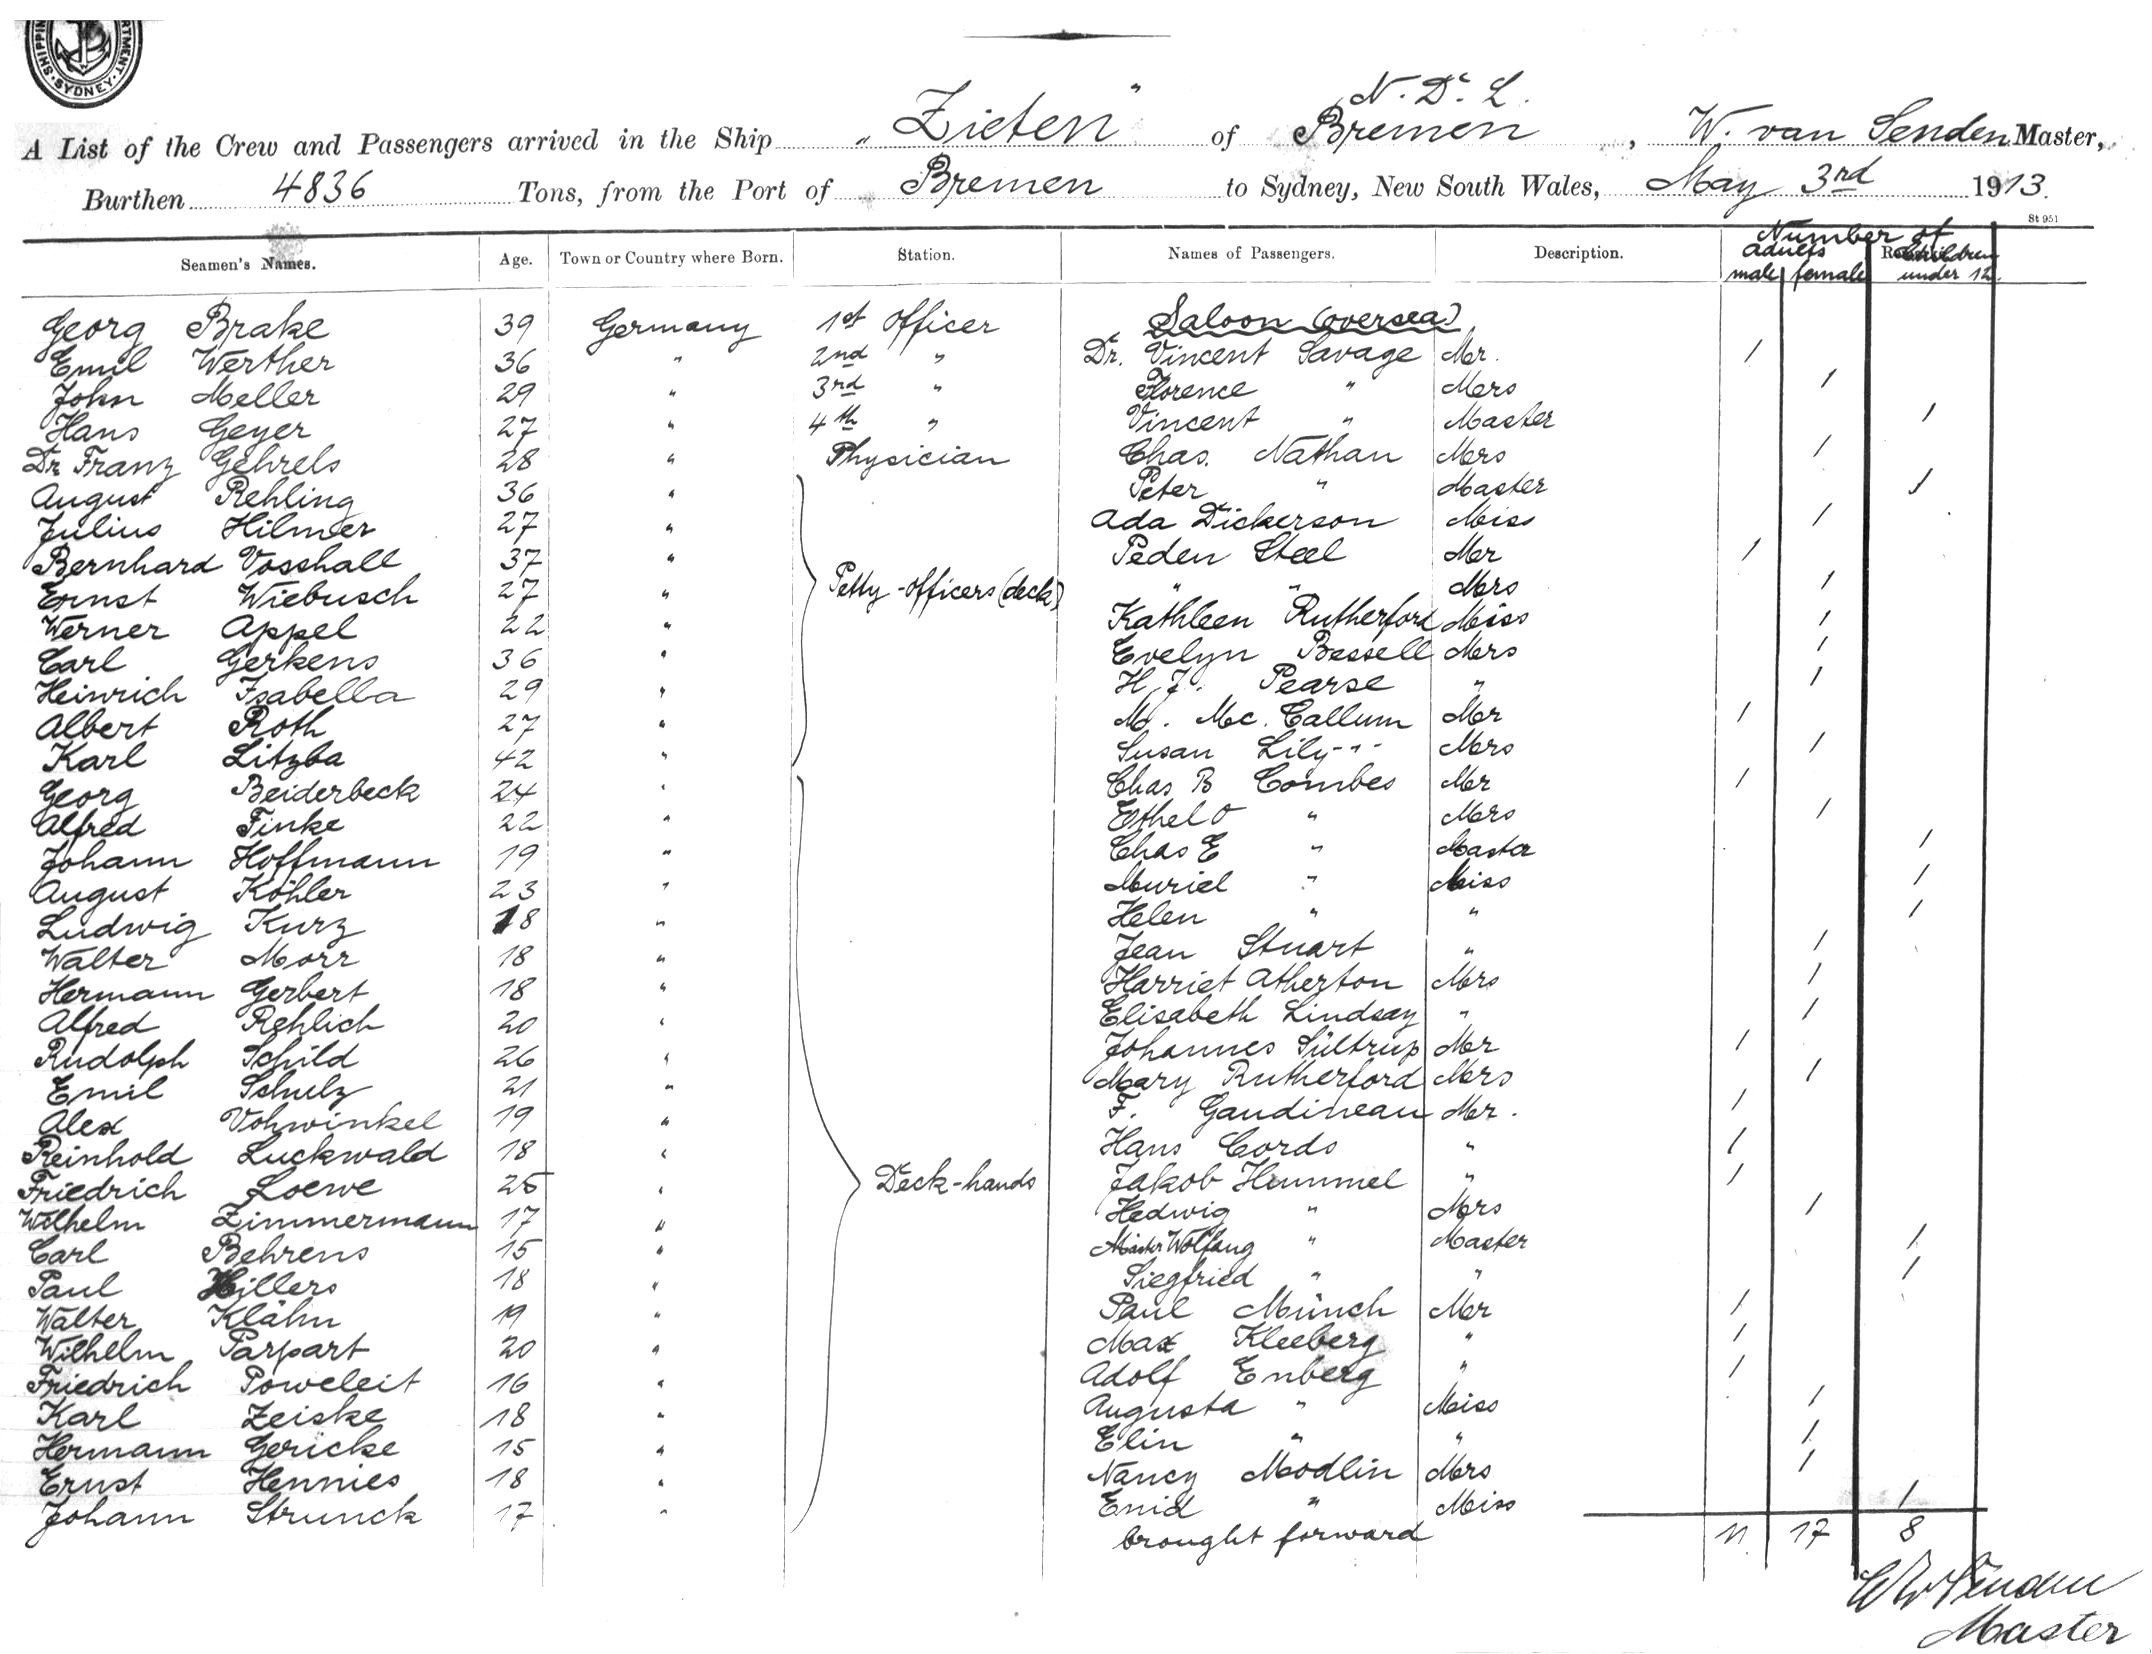 SHIPPIN RTMENT. SYDNEY
N. D. L.
A List of the Crew and Passengers arrived in the Ship "Zieten" of Bremen, W. van Senden Master,
Burthen 4836 Tons, from the Port of Bremen to Sydney, New South Wales, May 3rd 1913.
St 951
Number of
Seamen's Names. Age. Town or Country where Born. Station. Names of Passengers. Description. adults Children
male female under 12.
Georg Brake 39 Germany 1st Officer Saloon (oversea)
Emil Werther 36 " 2nd " Dr. Vincent Savage Mr. /
John Meller 29 " 3rd " Florence " Mrs /
Hans Geyer 27 " 4th " Vincent " Master /
Dr Franz Gehrels 28 " Physician Chas. Nathan Mrs /
August Rehling 36 " Peter " Master /
Julius Hilmer 27 " Ada Dickerson Miss /
Bernhard Vosshall 37 " Peden Steel Mr /
Ernst Wiebusch 27 " Petty-officers (deck) " " Mrs /
Werner Appel 22 " Kathleen Rutherford Miss /
Carl Gerkens 36 " Evelyn Bessell Mrs /
Heinrich Isabella 29 " H. J. Pearse " /
Albert Roth 27 " M. Mc. Callum Mr /
Karl Litzba 42 " Susan Lily -"- Mrs /
Georg Beiderbeck 24 " Chas B Combes Mr /
Alfred Finke 22 " Ethel O " Mrs /
Johann Hoffmann 19 " Chas E " Master /
August Köhler 23 " Muriel " Miss /
Ludwig Kurz 18 " Helen " " /
Walter Morr 18 " Jean Stuart " /
Hermann Gerbert 18 " Harriet Atherton Mrs /
Alfred Rehlich 20 " Elisabeth Lindsay " /
Rudolph Schild 26 " Johannes Sültrup Mr /
Emil Schulz 21 " Mary Rutherford Mrs /
Alex Vohwinkel 19 " F. Gaudineau Mr. /
Reinhold Luckwald 18 " Hans Cords " /
Friedrich Loewe 25 " Deck-hands Jakob Hummel " /
Wilhelm Zimmermann 17 " Hedwig " Mrs /
Carl Behrens 15 " Master Wolfang " Master /
Paul Hillers 18 " Siegfried " " /
Walter Klähn 19 " Paul Münch Mr /
Wilhelm Parpart 20 " Max Kleeberg " /
Friedrich Poweleit 16 " Adolf Enberg " /
Karl Zeiske 18 " Augusta " Miss /
Hermann Gericke 15 " Elin " " /
Ernst Hennies 18 " Nancy Modlin Mrs /
Johann Strunck 17 " Enid " Miss /
brought forward 11 17 8
Senden
Master